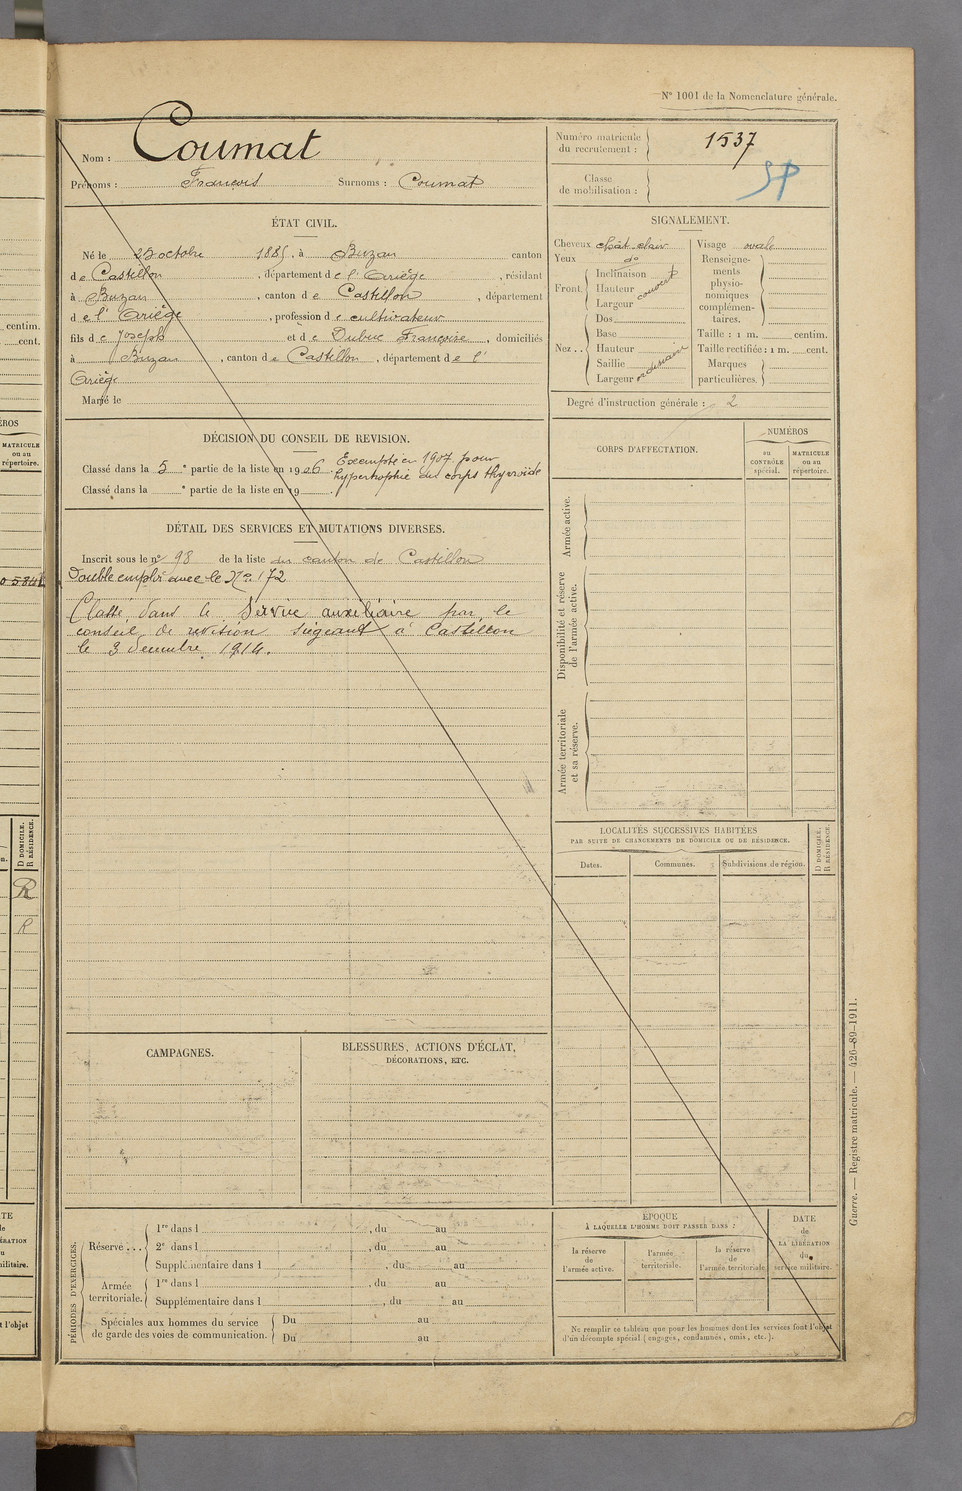 N° 1001 de la Nomenclature générale.
Nom : Coumat
Prénoms : François Surnoms : Coumat
Numéro matricule du recrutement : 1537
Classe de mobilisation :
SP
ÉTAT CIVIL.
Né le 25 octobre 1885, à Buzan canton
de Castillon, département de l'Ariège, résidant
à Buzan, canton de Castillon, département
de l'Ariège, profession de cultivateur
fils de Joseph et de Dubuc Françoise, domiciliés
à Buzan, canton de Castillon, département de l'
Ariège
Marié le
DÉCISION DU CONSEIL DE REVISION.
Classé dans la 5e partie de la liste en 1906. Exempté en 1907 pour
hypertrophie du corps thyroïde
Classé dans la e partie de la liste en 19
DÉTAIL DES SERVICES ET MUTATIONS DIVERSES.
Inscrit sous le n° 98 de la liste du canton de Castillon
Double emploi avec le N° 172
Classé dans le Service auxiliaire par le
conseil de révision siégeant à Castillon
le 3 décembre 1914.
CAMPAGNES.
BLESSURES, ACTIONS D'ÉCLAT,
DÉCORATIONS, ETC.
PÉRIODES D'EXERCICES.
Réserve ...
1re dans l , du au
2e dans l , du au
Supplémentaire dans l , du au
Armée territoriale.
1re dans l , du au
Supplémentaire dans l , du au
Spéciales aux hommes du service
de garde des voies de communication.
Du au
Du au
SIGNALEMENT.
Cheveux chât. clair Visage ovale
Yeux do
Front. Inclinaison
Hauteur couvert
Largeur
Nez .. Dos
Base
Hauteur ordinaire
Saillie
Largeur
Renseignements physionomiques complémentaires.
Taille : 1 m. centim.
Taille rectifiée : 1 m. cent.
Marques particulières.
Degré d'instruction générale : 2
CORPS D'AFFECTATION.
NUMÉROS
au CONTRÔLE spécial.
MATRICULE ou au répertoire.
Armée active.
Disponibilité et réserve de l'armée active.
Armée territoriale et sa réserve.
LOCALITÉS SUCCESSIVES HABITÉES
PAR SUITE DE CHANGEMENTS DE DOMICILE OU DE RÉSIDENCE.
Dates. Communes. Subdivisions de région.
D DOMICILE.
R RÉSIDENCE.
ÉPOQUE
À LAQUELLE L'HOMME DOIT PASSER DANS :
la réserve de l'armée active.
l'armée territoriale.
la réserve de l'armée territoriale.
DATE de LA LIBÉRATION du service militaire.
Ne remplir ce tableau que pour les hommes dont les services font l'objet
d'un décompte spécial (engagés, condamnés, omis, etc.).
Guerre. — Registre matricule. — 426-89-1911.
centim.
cent.
MATRICULE
ou au
répertoire.
D DOMICILE.
R RÉSIDENCE.
R
R